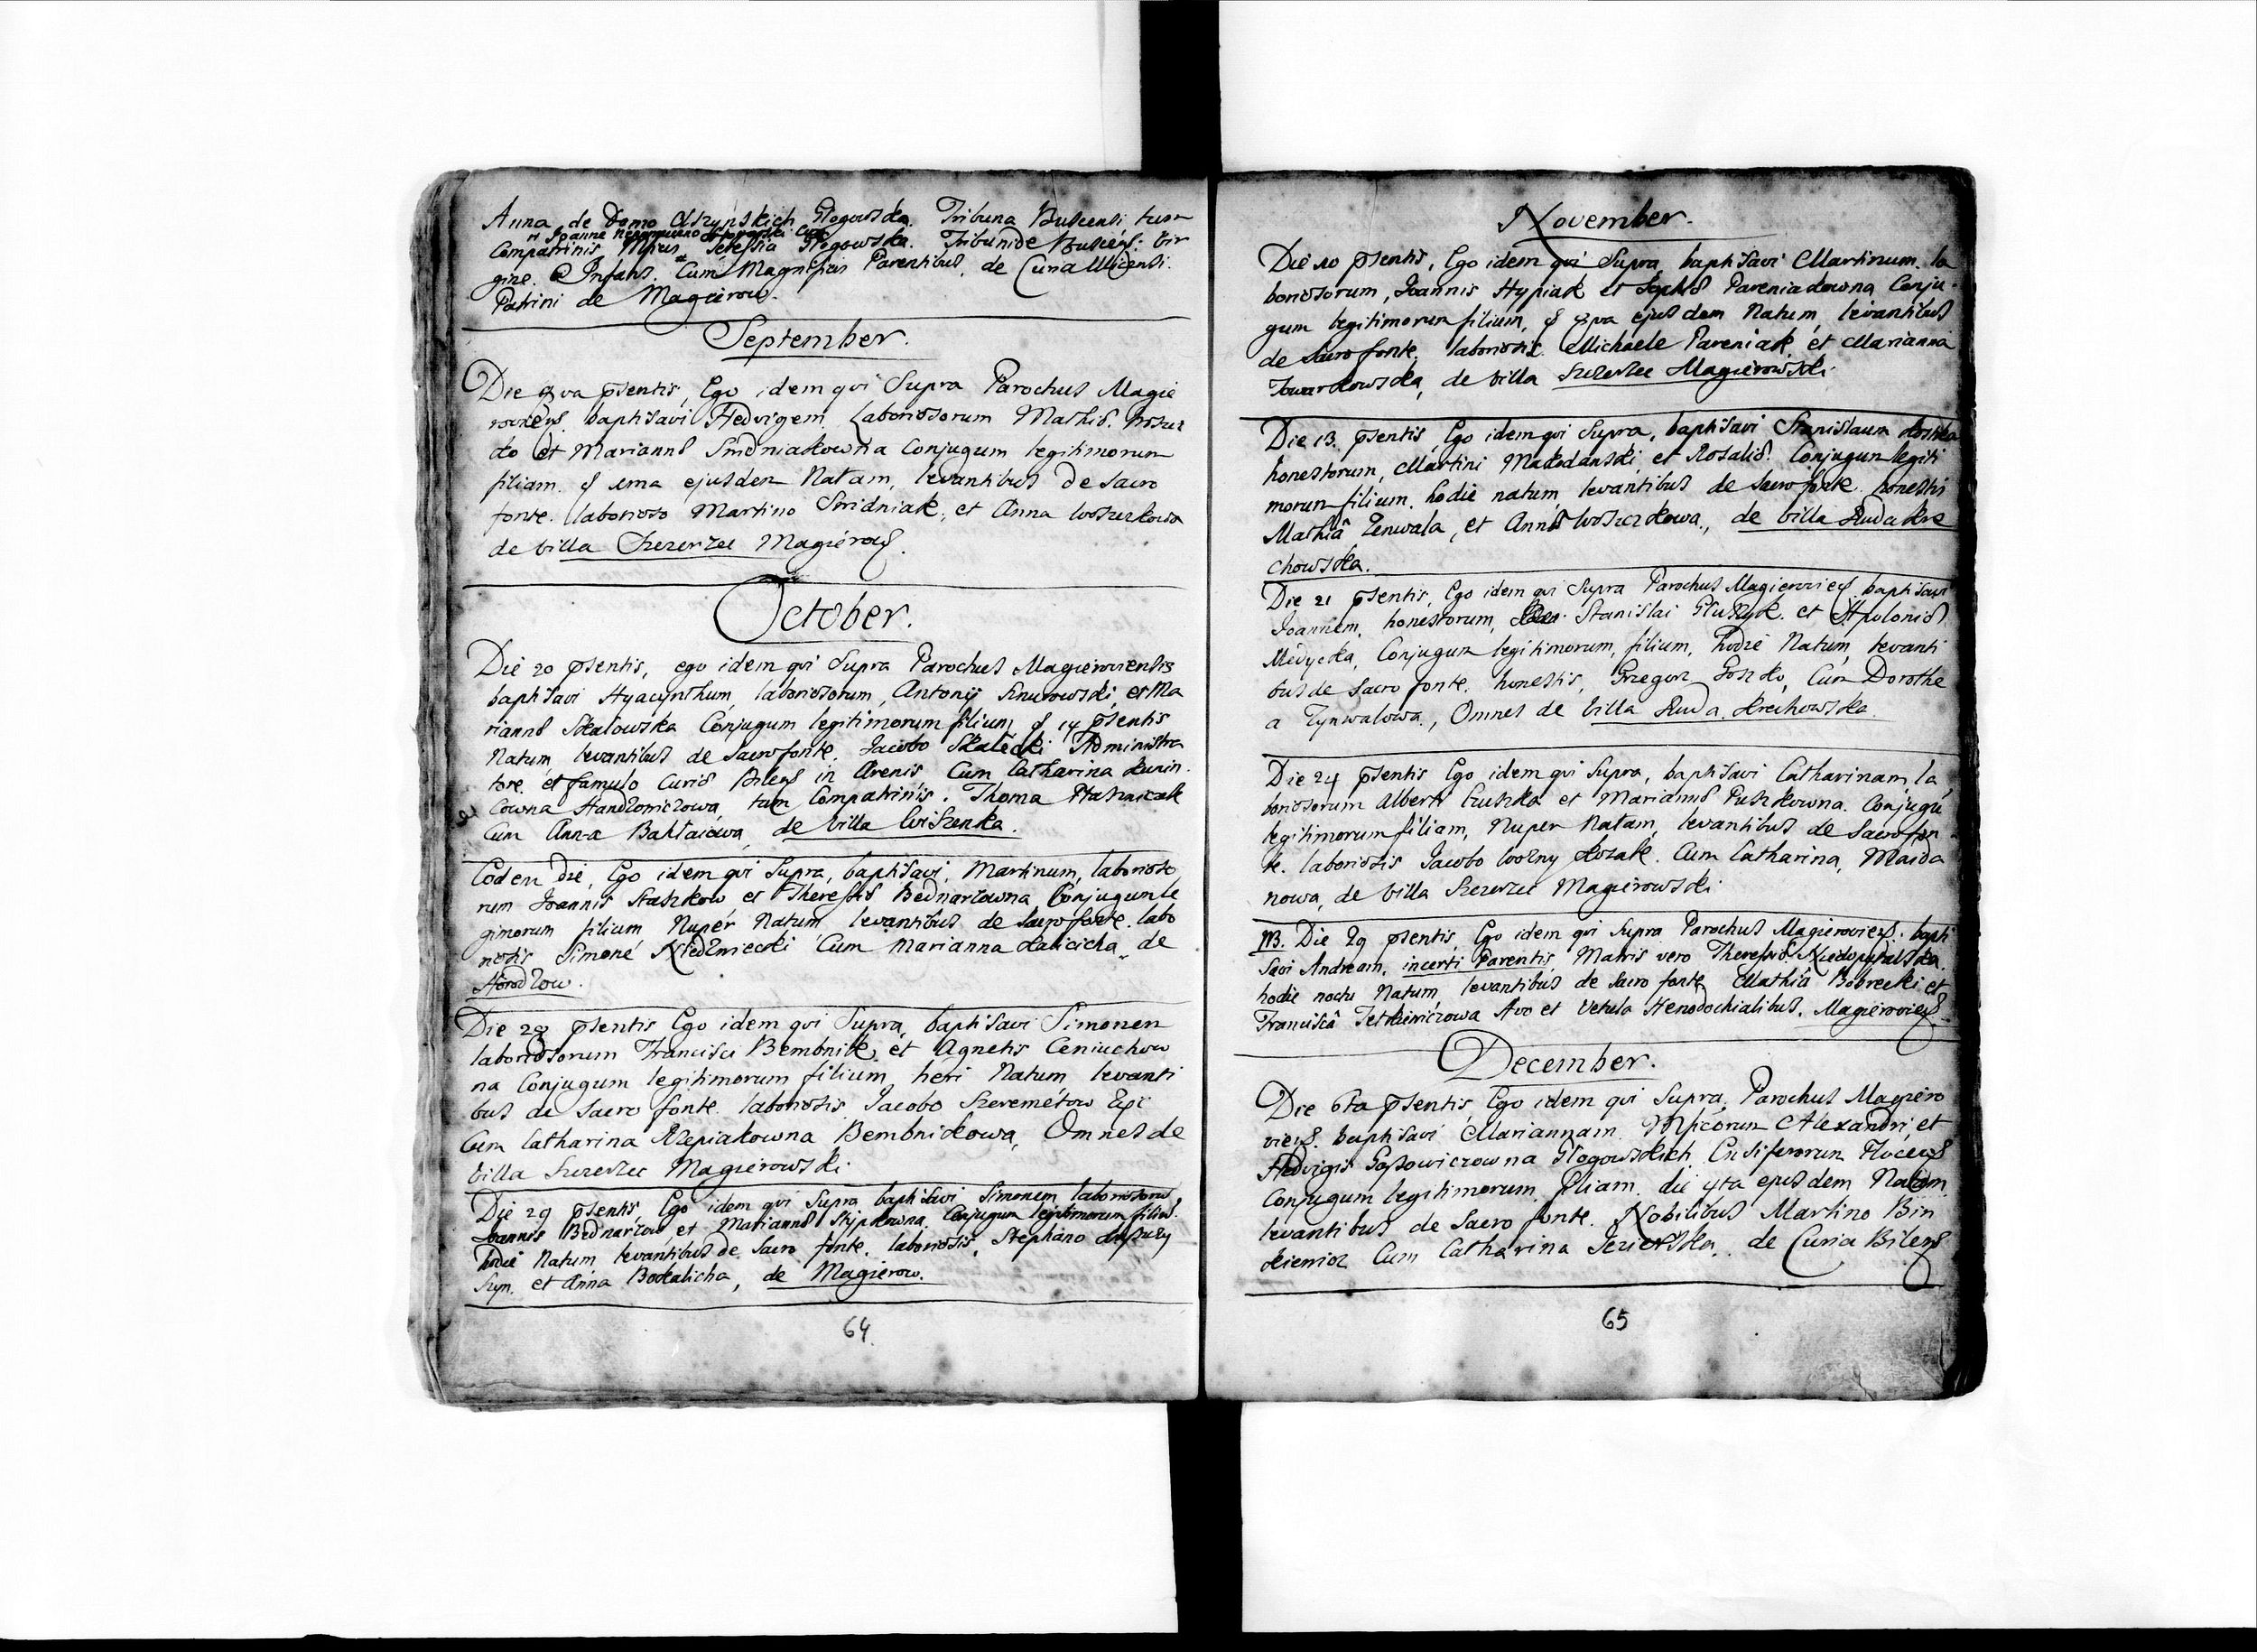 Anna de Domo Głogowska. Tribuna Buscensi tum
Joanne Nepomuceno
Compatrinis Theressia Głogowska. Tribunide Buscens: vir
gine. Infans. Cum Magnificis Parentibus, de Curia
Patrini de Magierow.
September.
Die 8va psentis, Ego idem qvi Supra Parochus Magie
roviens. baptisavi Hedvigem, Laboriosorum Mathiæ.
do et Mariannæ Snidniakowna Conjugum legitimorum
filiam. d 1ma ejusdem Natam, levantibus de Sacro
fonte. laborioso Martino Snidniak, et Anna Woszczkowa
de villa Szczerzec Magierows.
October.
Die 20 psentis, ego idem qvi Supra Parochus Magieroviensis
baptisavi Hyacynthum, laboriosorum, Antonij Sznurowski, et Ma
riannæ Skalowska Conjugum legitimorum filium, d 14 psentis
Natum, levantibus de Sacro fonte. Jacobo Skalecki Administra
tore. et famulo Curiæ Bilens in Arenis, Cum Catharina
cowna Handlowiczowa, tum Compatrinis. Thoma Ptasznicak
Cum Anna Bahlaiowa, de villa Wiszenka.
Eodem die, Ego idem qvi Supra, baptisavi, Martinum, laborioso
rum Joannis Staszkow, et Theressiæ Bednarzowna Conjugum le
gimorum filium Nuper Natum levantibus de Sacro fonte. labo
riosis Simone Niedzwiecki Cum Marianna Kalicicha, de
Horodzow.
Die 28 psentis Ego idem qvi Supra, baptisavi Simonem
laboriosorum Francisci Bembnik, et Agnetis Ceniuchow
na Conjugum legitimorum filium, heri Natum levanti
bus de Sacro fonte. laboriosis Jacobo Szeremetow
Cum Catharina Rzepiakowna Bembnikowa, Omnes de
villa Szczerzec Magierowski.
Die 29 psentis, Ego idem qvi Supra baptisavi Simonem laboriosoru
Joannis Bednarzow, et Mariannæ Stypkowna. Conjugum legitimorum filiu.
hodie Natum levantibus de Sacro fonte. laboriosis, Stephano
Szyn. et Anna Bokalicha, de Magierow.
64
November.
Die 10 psentis, Ego idem qvi Supra, baptisavi Martinum. la
boriosorum, Joannis Hypiak et Sophiæ Pareniakowna Conju
gum legitimorum filium, d 8va ejusdem Natum, levantibus
de Sacro fonte, laboriosis. Michaele Pareniak, et Marianna
Towarkowska, de villa Szczerzec Magierowski.
Die 13. psentis, Ego idem qvi Supra, baptisavi Stanislaum Kostka
honestorum, Martini Makodanski, et Rosaliæ. Conjugum legiti
morum filium. hodie natum, levantibus de Sacro fonte. honestis
Mathiâ Zenwala, et Anna Woszczkowa., de villa Ruda Kre
chowska.
Die 21 psentis, Ego idem qvi Supra Parochus Magieroviens. baptisavi
Joannem, honestorum, Stanislai Głuszyk. et Apoloniæ
Medycka, Conjugum legitimorum, filium, hodie Natum, levanti
bus de Sacro fonte. honestis, Grzegorz Goszko, Cum Dorothe
a Zynwalowa., Omnes de villa Ruda Krechowska.
Die 24 psentis Ego idem qvi Supra, baptisavi Catharinam, la
boriosorum Alberti Puszka et Mariannæ Puszkowna. Conjugu
legitimorum filiam, Nuper Natam, levantibus de Sacro fon
te. laboriosis Jacobo Wozny Kozak. Cum Catharina, Maida
nowa, de villa Szczerzec Magierowski.
NB. Die 29 psentis, Ego idem qvi Supra Parochus Magieroviens. bapti
savi Andream, incerti Parentis Matris vero Theressiæ
hodie noctu Natum, levantibus de Sacro fonte, Mathiâ Bobrecki et
Franciscâ Avo et Vetula Henodochialibus. Magieroviens.
December.
Die 6ta psentis, Ego idem qvi Supra, Parochus Magiero
viens. baptisavi Mariannam. Mficorum Alexandri, et
Hedvigis Gąssowiczowna Głogowskich Ensiferorum
Conjugum legitimorum filiam. die 4ta ejusdem Natam
levantibus de Sacro fonte. Nobilibus Martino Bin
kiewicz Cum Catharina Jezierska, de Curia Bilens
65